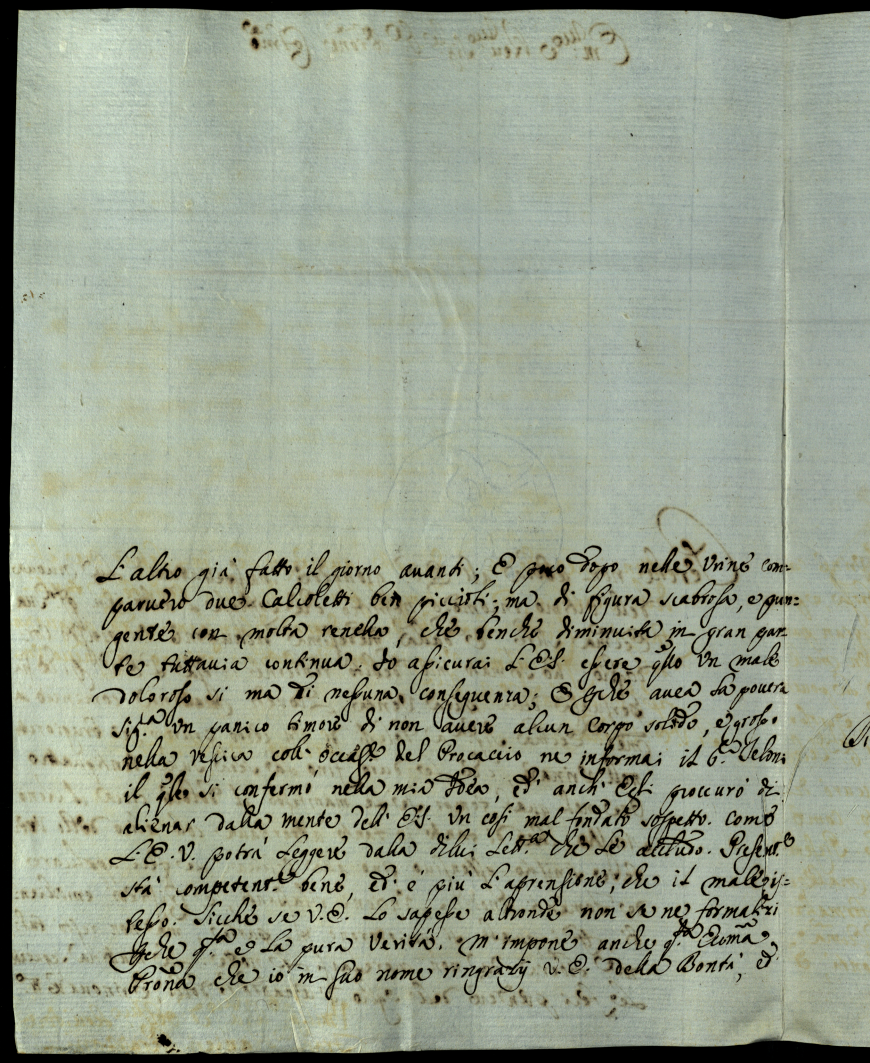 L'altro già fatto il giorno avanti; E puo dopo nelle Urine com-
parvero due Calcoletti ben piccioli; ma di figura scabrosa, e pun=
gente con molta renella, che benche diminuita in gran par
te tuttavia continua. Io assicurai L'E.S. essere qsto Un male
doloroso si ma di nessuna conseguenza; E pche avea la povera
Sig.ra Un panico timore di non avere alcun Corpo solido, e grosso
nella Vessica coll' occase. del Procaccio ne informai il
il qle si confermò nella mia Idea, ed' anch' Egli proccurò di
alienar dalla mente dell' E.S. Un cosi mal fondato sospetto. come
L.E.V. potrà Leggere dalla dilui Lett.ra che Le accludo. Present.e
stà competent.e bene, ed' è più L'aprensione, che il male is-
tesso. Sicchè se V.E. Lo sapesse altronde non se ne formalizzi
pche q.sta e La pura Verità. M'impone anche q.sta Ecc̃ma
Prõna che io in suo nome ringrazij V.E. della Bontà, ed